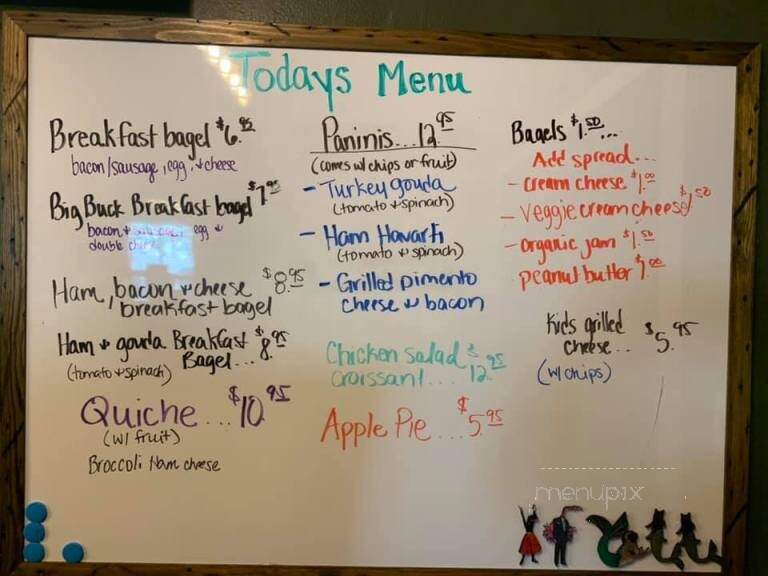 Todays Menu
Breakfast bagel $6.95
bacon/sausage, egg, + cheese
Big Buck Breakfast bagel $7.95
bacon + sausage, egg +
double
Ham, bacon + cheese $8.95
breakfast bagel
Ham + gouda Breakfast $8.95
Bagel...
(tomato + spinach)
Quiche ... $10.95
(w/ fruit)
Broccoli Ham cheese
Paninis...12.95
(comes w/ chips or fruit)
- Turkey gouda
(tomato + spinach)
- Ham Havarti
(tomato + spinach)
- Grilled Pimento
cheese + bacon
Chicken salad $
croissant.... 12.95
Apple Pie ... $5.95
Bagels $1.50...
Add spread...
- cream cheese $1.00
- Veggie cream cheese $1.50
- organic jam $1.50
peanut butter $1.00
Kids grilled $5.95
cheese...
(w/ chips)
menupix